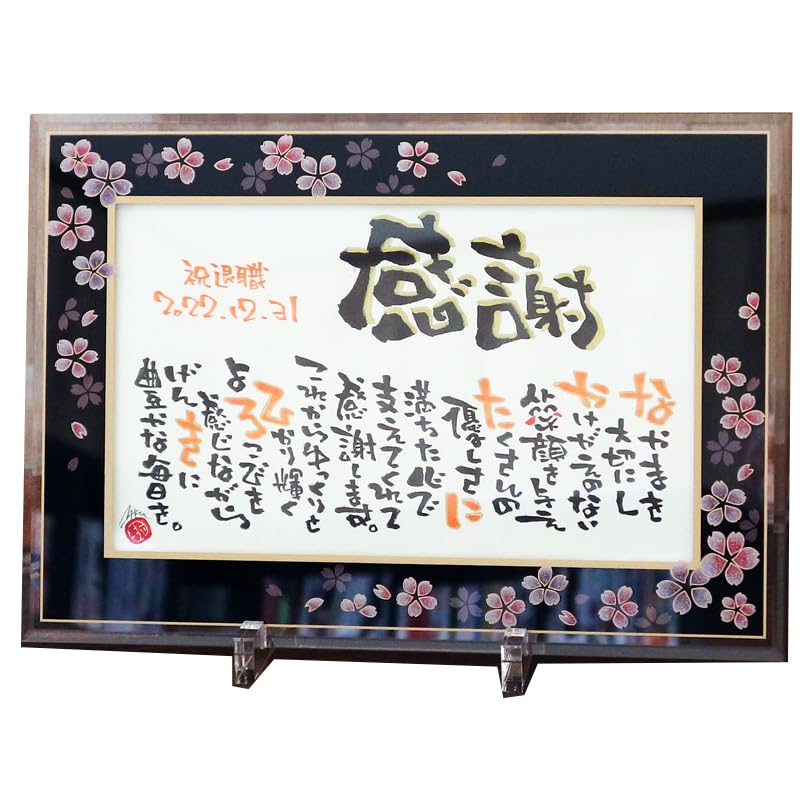 感謝
祝退職
2022.12.31
なかまを
大切にし
かけがえのない
笑顔を与え
たくさんの
優しさに
満ちた心で
支えてくれて
感謝します。
これからゆっくりと
ひかり輝く
よろこびを
感じながら
げんきに
豊かな毎日を。